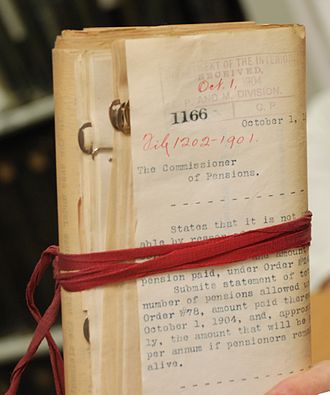 MENT OF THE INTERIOR
RECEIVED,
Oct. 1,
1904
P. AND M. DIVISION.
1166 G. P.
October 1, 1
File 1202-1901.
The Commissioner
of Pensions.
States that it is not
able by reason of
and amount
pension paid, under Order №78
Submits statement of to
number of pensions allowed u
Order №78, amount paid there
October 1, 1904, and, approx
ly, the amount that will be
per annum if pensioners rema
alive.